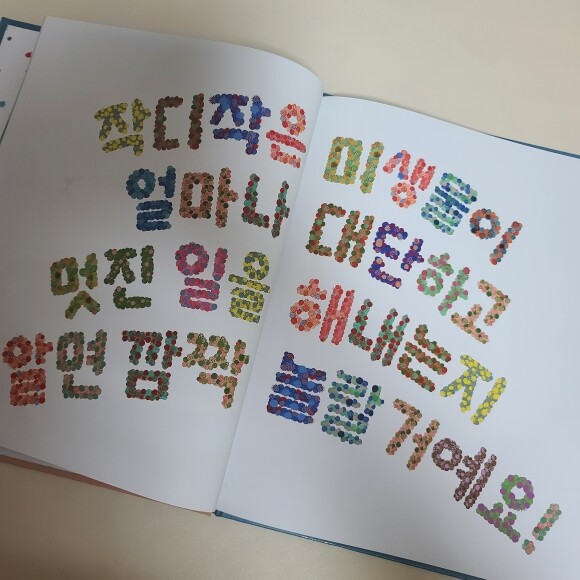 작디작은 미생물이
얼마나 대단하고
멋진 일을 해내는지
알면 깜짝 놀랄 거예요!